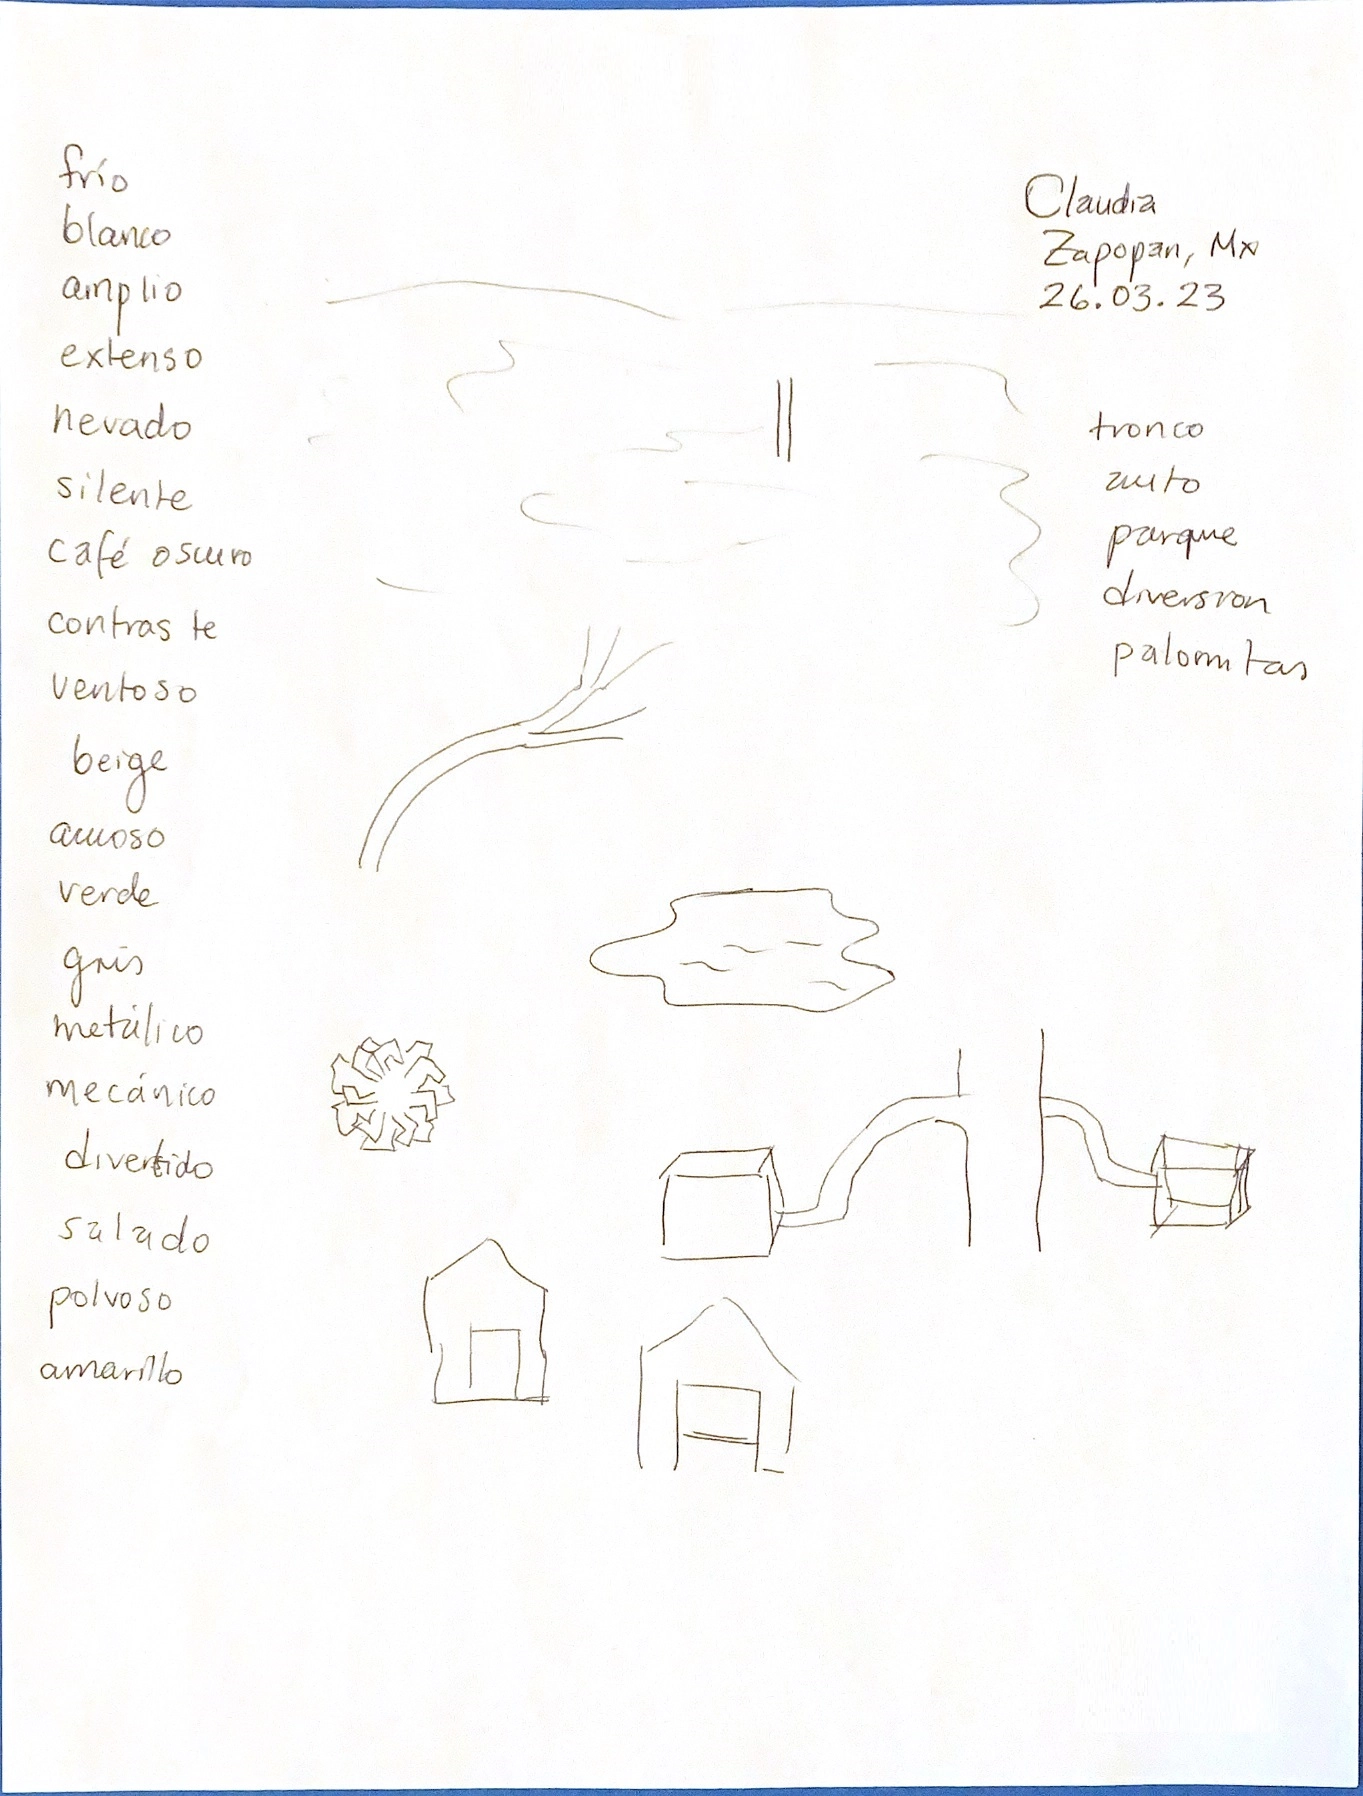 frío
blanco
amplio
extenso
nevado
silente
café oscuro
contraste
ventoso
beige
acuoso
verde
gris
metálico
mecánico
divertido
salado
polvoso
amarillo
Claudia
Zapopan, Mx
26.03.23
tronco
auto
parque
diversion
palomitas